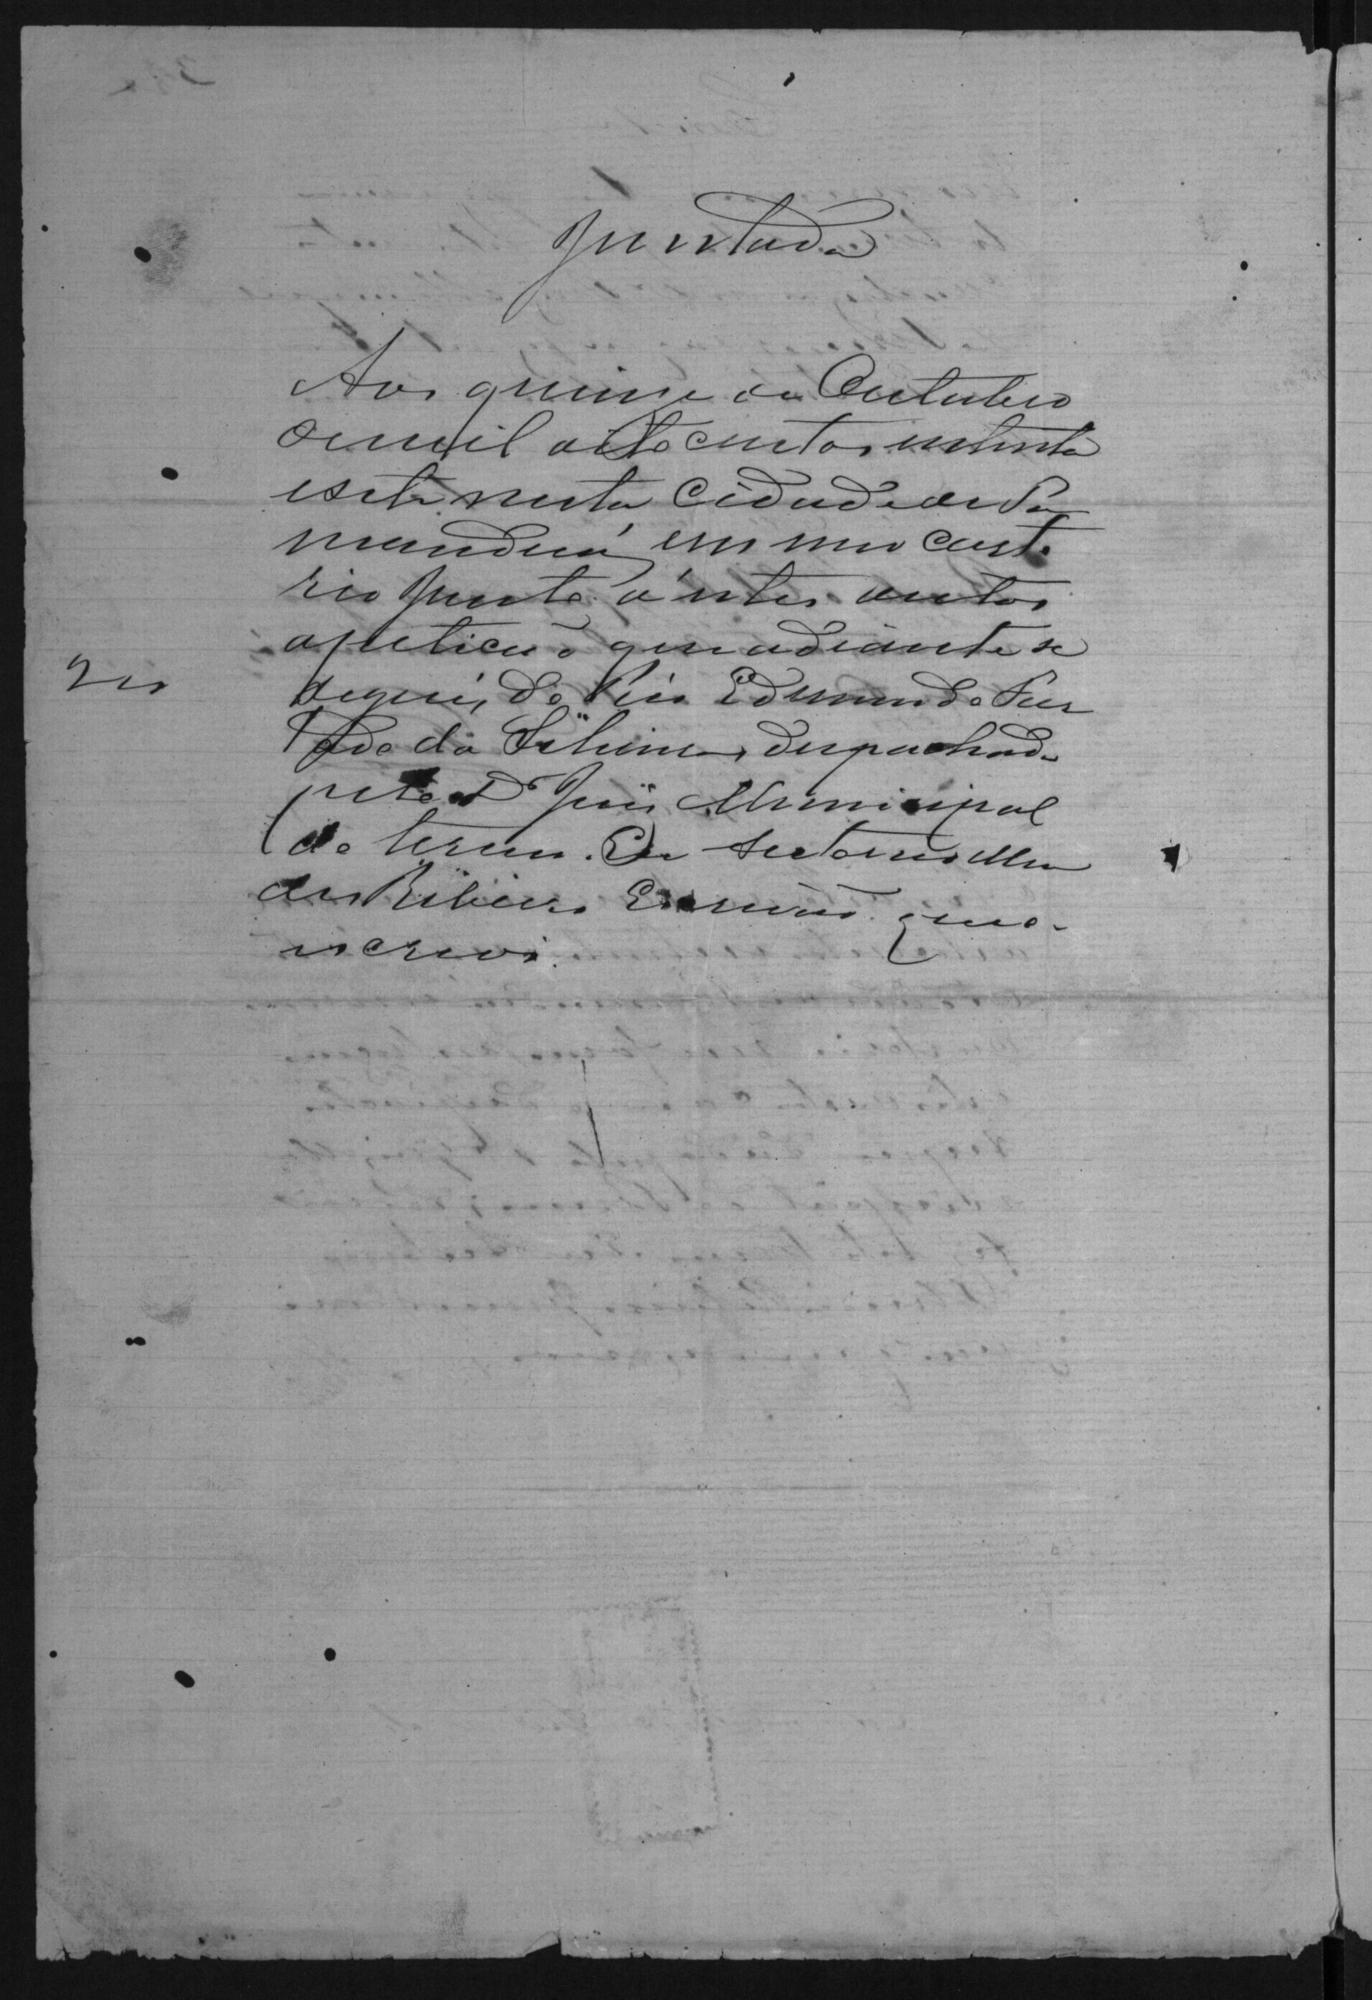 Juntada
Aos quinse de Outubro
de mil oito centos e setenta
e sete nesta Cidade de Pa
nanduá em meo carto
rio junto á estes autos
a peticão que adiante se
segue, de Pio Edmundo Fur
tado da Silveira, despachada
pelo Dr Juis Municipal
do termo. Eu
de Ribeiro Escrivão que o
escrevi.